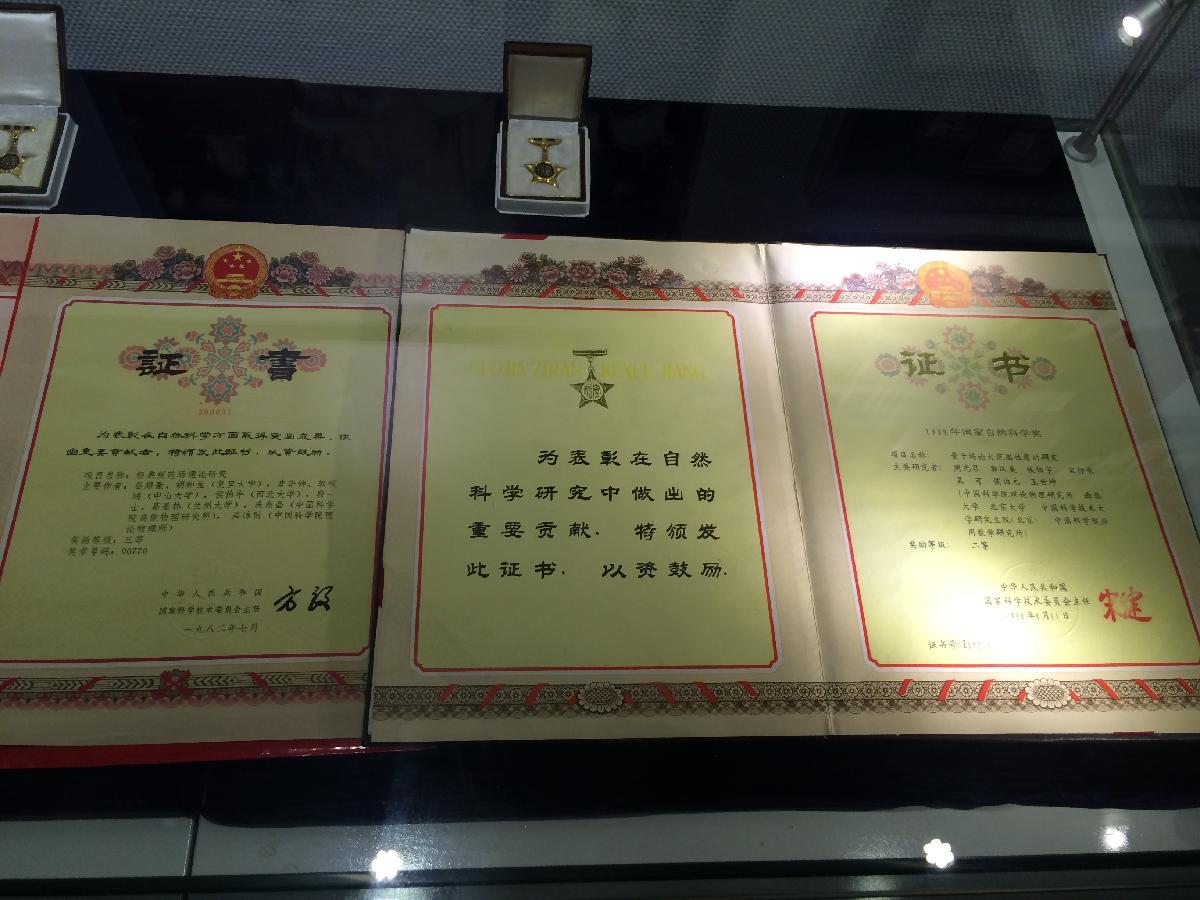 証書
200031
为表彰在自然科学方面取得突出成果、作
出重要贡献者,特颁发此証书,以资鼓励。
项目名称:经典规范场理论研究
主要作者:谷超豪、胡和生(复旦大学)、李华钟、郭硕
鸿(中山大学)、侯伯宇(西北大学)、段一
士、葛墨林(兰州大学)、
院高能物理研究所)、吴咏时(中国科学院理
论物理所)
奖励等级:三等
奖章号码:00770
中华人民共和国
国家科学技术委员会主任 方毅
一九八二年七月
GUOJIA ZIRAN KEXUE JIANG
为表彰在自然
科学研究中做出的
重要贡献,特颁发
此证书,以资鼓励。
证书
1989年国家自然科学奖
项目名称:量子场论大范围性质的研究
主要研究者:周光召 郭汉英 侯伯宇 宋行长
吴可 侯伯元 王世坤
(中国科学院理论物理研究所 西北
大学 北京大学 中国科学技术大
学研究生院(北京) 中国科学院应
用数学研究所)
奖励等级:二等
中华人民共和国
国家科学技术委员会主任 宋健
证书号: